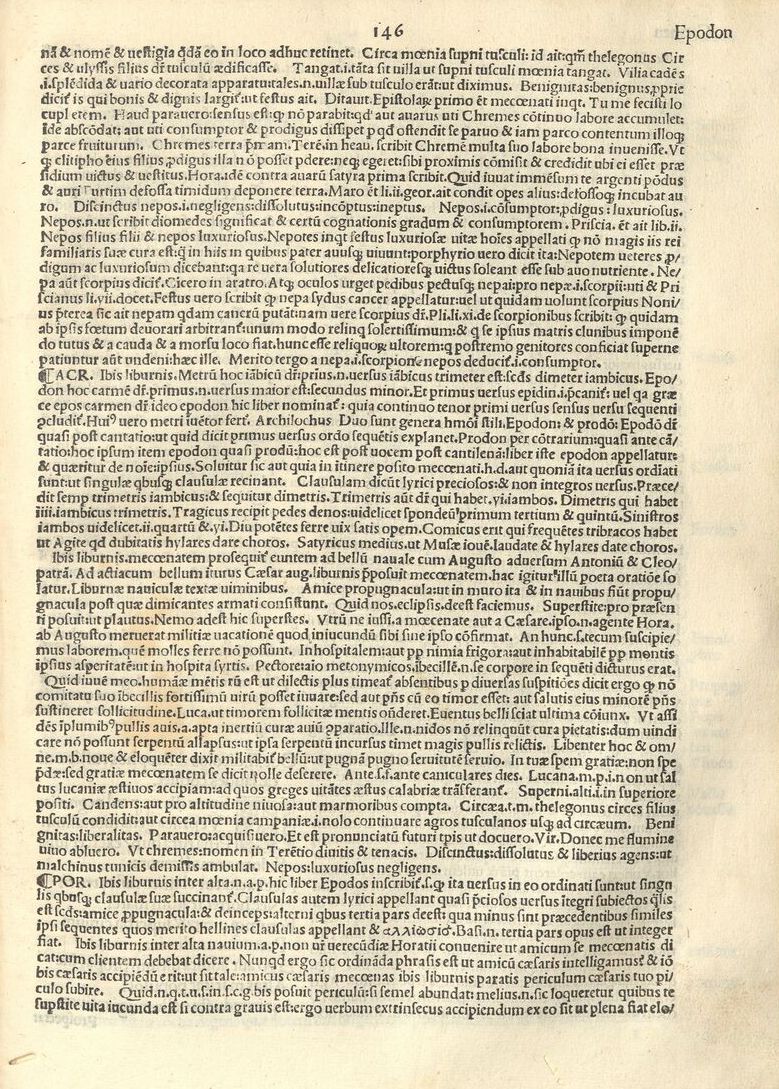 146
Epodon
nã & nomẽ & uestigia q̃dã eo in loco adhuc retinet. Circa mœnia supni tusculi: id ait: qm̃ thelegonus Cir
ces & ulyssis filius dr̃ tusculũ ædificasse. Tangat .i. tãta sit uilla ut supni tusculi mœnia tangat. Vilia cadẽs
.i. splẽdida & uario decorata apparatu: tales .n. uillæ sub tusculo erãt: ut diximus. Benignitas: benignus, ꝓprie
dicit̃ is qui bonis & dignis largit̃: ut festus ait. Ditauit. Epistolaꝝ primo ẽt mecœnati inqt. Tu me fecisti lo
cupletem. Haud parauero: sensus est: ꝙ nõ parabit: qd̃ aut auarus uti Chremes cõtinuo labore accumulet:
ĩde abscõdat: aut uti consumptor & prodigus dissipet ꝓ qd ostendit se paruo & iam parco contentum illoq̃
parce fruiturum. Chremes terra p̃mam. Terẽ. in heau. scribit Chremẽ multa suo labore bona inuenisse. Vt
ꝙ clitipho eius filius ꝓdigus illa nõ posset pdere: neq̃ egeret: sibi proximis cõmisit & credidit ubi ei esset præ
sidium uictus & uestitus. Hora. idẽ contra auarũ satyra prima scribit. Quid iuuat immẽsum te argenti põdus
& auri furtim defossa timidum deponere terra. Maro ẽt li. ii. geor. ait condit opes alius: defossoq̃ incubat au
ro. Discinctus nepos .i. negligens: dissolutus: incõptus: ineptus. Nepos .i. cõsumptor: ꝓdigus: luxuriosus.
Nepos .n. ut scribit diomedes significat & certũ cognationis gradum & consumptorem. Priscia. ẽt ait lib. ii.
Nepos filius filii & nepos luxuriosus. Nepotes inqt festus luxuriosæ uitæ hoĩes appellati ꝙ nõ magis iis rei
familiaris suæ cura est: q̃ in hiis in quibus pater auusq̃ uiuunt: porphyrio uero dicit ita: Nepotem ueteres ꝓ/
digum ac luxuriosum dicebant: qa re uera solutiores delicatioresq̃ uictus soleant esse sub auo nutriente. Ne/
pa aũt scorpius dicit̃. Cicero in arato. Atq̃ oculos urget pedibus pectusq̃ nepai: pro nepæ .i. scorpii: uti & Pri
scianus li. vii. docet. Festus uero scribit ꝙ nepa sydus cancer appellatur: uel ut quidam uolunt scorpius Noni/
us p̃terea sic ait nepam qdam cancrũ putãt: nam uere scorpius dr̃. Pli. li. xi. de scorpionibus scribit: ꝙ quidam
ab ipsis fœtum deuorari arbitrant̃: unum modo relinq̃ solertissimum: & q se ipsius matris clunibus imponẽ
do tutus & a cauda & a morsu loco fiat. hunc esse reliquoꝝ ultorem: q postremo genitores conficiat superne
patiuntur aũt undeni: hæc ille. Merito tergo a nepa .i. scorpione nepos deducit̃ .i. consumptor.
¶ACR. Ibis liburnis. Metrũ hoc iãbicũ dr̃: prius .n. uersus iãbicus trimeter est: scds̃ dimeter iambicus. Epo/
don hoc carmẽ dr̃. primus .n. uersus maior est: secundus minor. Et primus uersus epidin .i. p̃canit̃: uel qa græ
ce epos carmen dr̃ ideo epodon hic liber nominat̃: quia continuo tenor primi uersus sensus uersu sequenti
ꝯcludit̃. Huiꝰ uero metri ĩuẽtor fert̃ Archilochus Duo sunt genera hmõi stili. Epodon: & prodõ: Epodõ dr̃
quasi post cantatio: ut quid dicit primus uersus ordo sequẽtis explanet. Prodon per cõtrarium: quasi ante cã/
tatio: hoc ipsum item epodon quasi prodũ: hoc est post uocem post cantilenã: liber iste epodon appellatur:
& quæritur de noĩe: ipsius. Soluitur sic aut quia in itinere posito mecœnati .h. d. aut quoniã ita uersus ordĩati
sunt: ut singulæ qbusq̃ clausulæ recinant. Clausulam dicũt lyrici preciosos: & non integros uersus. Præce/
dit semp trimetris iambicus: & sequitur dimetris. Trimetris aũt dr̃ qui habet .vi. iambos. Dimetris qui habet
iiii. iambicus trimetris. Tragicus recipit pedes denos: uidelicet spondeũ primum tertium & quintũ. Sinistros
iambos uidelicet .ii. quartũ & .vi. Diu potẽtes ferre uix satis opem. Comicus erit qui frequẽtes tribracos habet
ut Agite qd dubitatis hylares dare choros. Satyricus medius, ut Musæ iouẽ. laudate & hylares date choros.
Ibis liburnis. mecœnatem prosequit̃ euntem ad bellũ nauale cum Augusto aduersum Antoniũ & Cleo/
patrã. Ad actiacum bellum iturus Cæsar aug. liburnis p̃posuit mecœnatem. hac igitur illũ poeta oratiõe so
latur. Liburnæ nauiculæ textæ uiminibus. Amice propugnacula: ut in muro ita & in nauibus fiũt propu/
gnacula post quæ dimicantes armati consistunt. Quid nos. eclipsis. deest faciemus. Superstite: pro præsen
ti posuit: ut plautus. Nemo adest hic superstes. Vtrũ ne iussi. a mœcenate aut a Cæsare. ipso .n. agente Hora.
ab Augusto meruerat militiæ uacationẽ quod iniucundũ sibi sine ipso cõfirmat. An hunc. s. tecum suscipie/
mus laborem. quẽ molles ferre nõ possunt. Inhospitalem: aut pp nimia frigora: aut inhabitabilẽ pp montis
ipsius asperitatẽ: ut in hospita syrtis. Pectore: aio metonymicos. ĩbecillẽ .n. se corpore in sequẽti dicturus erat.
Quid iuuẽ meo. humãæ mẽtis rũ est ut dilectis plus timeat̃ absentibus ꝓ diuersas suspitiões dicit ergo ꝙ nõ
comitatu suo ĩbecillis fortissimũ uirũ posset iuuare: sed aut pñs cũ eo timor esset: aut salutis eius minorẽ pñs
sustineret sollicitudine. Luca. ut timorem follicitæ mentis oñderet. Euentus belli sciat ultima cõiunx. Vt assi
dẽs ĩplumibꝰ pullis auis. a apta inertiũ curæ auiũ ꝯparatio. ille .n. nidos nõ relinqũt cura pietatis: dum uindi
care nõ possunt serpentũ allapsus: ut ipsa serpentũ incursus timet magis pullis relictis. Libenter hoc & om/
ne. m. b. noue & eloquẽter dixit militabit̃ bellũ: ut pugnã pugno seruitutẽ seruio. In tuæ spem gratiæ: non spe
p̃dæ: sed gratiæ mecœnatem se dicit nolle deserere. Ante. s. f. ante caniculares dies. Lucana. m. p. i. non ut sal
tus lucaniæ æstiuos accipiam: ad quos greges uitãtes æstus calabriæ trãsferant̃. Superni. alti .i. in superiore
positi. Candens: aut pro altitudine niuosa: aut marmoribus compta. Circæa. t. m. thelegonus circes filius
tusculũ condidit: aut circæa mœnia campaniæ .i. nolo continuare agros tusculanos usq̃ ad circæum. Beni
gnitas: liberalitas. Parauero: acquisiuero. Et est pronunciatũ futuri tp̃is ut docuero. Vir. Donec me flumine
uiuo abluero. Vt chremes: nomen in Terẽtio diuitis & tenacis. Discinctus: dissolutus & liberius agens: ut
malchinus tunicis demissis ambulat. Nepos: luxuriosus negligens.
¶POR. Ibis liburnis inter alta. n. a. p. hic liber Epodos inscribit̃. s. ꝙ ita uersus in eo ordinati sunt: ut singu
lis qbusq̃ clausulæ suæ succinant̃. Clausulas autem lyrici appellant quasi p̃ciosos uersus ĩtegri subiectos q̃lis
est scds: amice ꝓpugnacula: & deinceps: alterni qbus tertia pars deest: qua minus sint præcedentibus similes
ipsi sequentes quos merito hellines clausulas appellant & αλλιοσισ. Basi .n. tertia pars opus est ut integer
fiat. Ibis liburnis inter alta nauium. a. p. non ur̃ uerecũdiæ Horatii conuenire ut amicum se mecœnatis di
cat: cum clientem debebat dicere. Nunqd ergo sic ordinãda phrasis est ut amicũ cæsaris intelligamus? & iõ
bis cæsaris accipiẽdũ erit: ut sit tale: amicus cæsaris mecœnas ibis liburnis paratis periculum cæsaris tuo pi/
culo subire. Quid. n. q. t. u. s. in s. c. g. bis posuit periculũ: si semel abundat: melius .n. sic loqueretur quibus te
supstite uita iucunda est si contra grauis est: ergo uerbum extrinsecus accipiendum ex eo sit ut plena fiat elo/